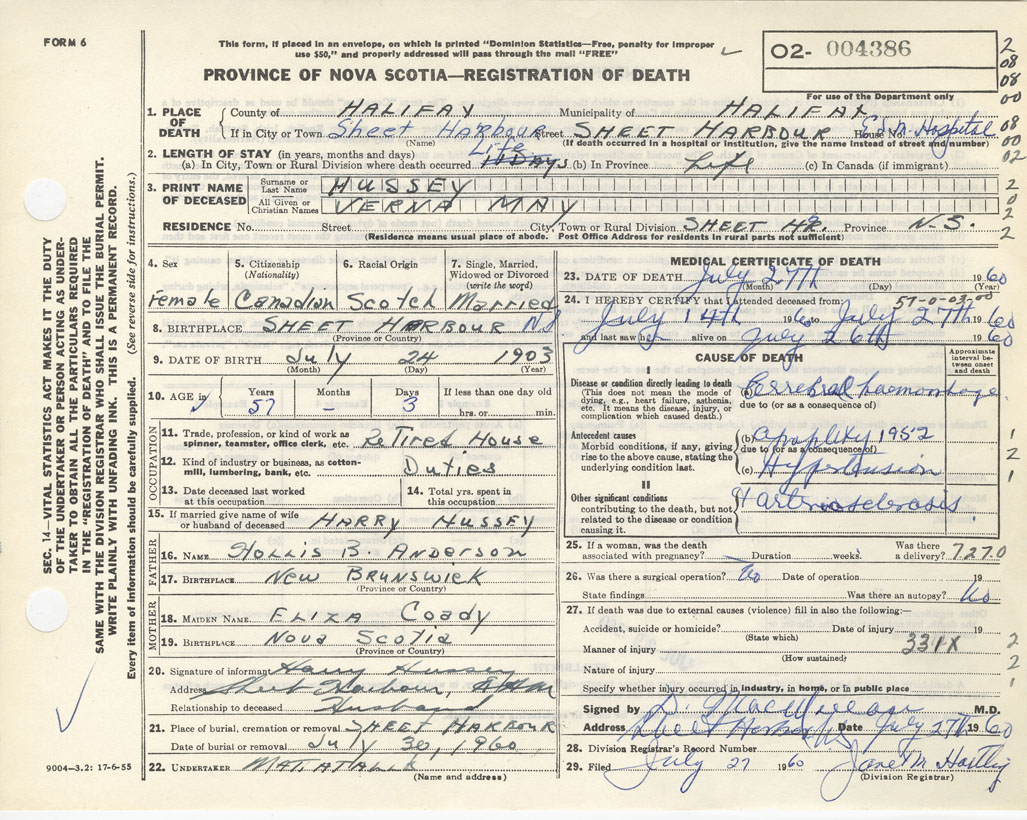 FORM 6
This form, if placed in an envelope, on which is printed "Dominion Statistics—Free, penalty for improper
use $50," and properly addressed will pass through the mail "FREE"
PROVINCE OF NOVA SCOTIA—REGISTRATION OF DEATH
O2- 004386
For use of the Department only
2
08
08
00
08
00
02
2
0
2
2
1. PLACE OF DEATH
County of HALIFAX Municipality of HALIFAX
If in City or Town Sheet Harbour Street SHEET HARBOUR House No. Hospital
(Name) (If death occurred in a hospital or institution, give the name instead of street and number)
2. LENGTH OF STAY (in years, months and days)
(a) In City, Town or Rural Division where death occurred Life 10 Days (b) In Province Life (c) In Canada (if immigrant)
3. PRINT NAME OF DECEASED
Surname or Last Name HUSSEY
All Given or Christian Names VERNA MAY
RESIDENCE No. Street City, Town or Rural Division SHEET HR. Province N.S.
(Residence means usual place of abode. Post Office Address for residents in rural parts not sufficient)
4. Sex Female
5. Citizenship (Nationality) Canadian
6. Racial Origin Scotch
7. Single, Married, Widowed or Divorced (write the word) Married
8. BIRTHPLACE SHEET HARBOUR NS
(Province or Country)
9. DATE OF BIRTH July 24 1903
(Month) (Day) (Year)
10. AGE in Years 57 Months – Days 3 If less than one day old
hrs. or min.
OCCUPATION
11. Trade, profession, or kind of work as spinner, teamster, office clerk, etc. Retired House
12. Kind of industry or business, as cotton-mill, lumbering, bank, etc. Duties
13. Date deceased last worked at this occupation
14. Total yrs. spent in this occupation
15. If married give name of wife or husband of deceased HARRY HUSSEY
FATHER
16. NAME Hollis B. Anderson
17. BIRTHPLACE New BRUNSWICK
(Province or Country)
MOTHER
18. MAIDEN NAME ELIZA Coady
19. BIRTHPLACE Nova Scotia
(Province or Country)
20. Signature of informant Harry Hussey
Address Sheet Harbour,
Relationship to deceased Husband
21. Place of burial, cremation or removal SHEET HARBOUR
Date of burial or removal July 30, 1960
22. UNDERTAKER MATATALL
(Name and address)
MEDICAL CERTIFICATE OF DEATH
23. DATE OF DEATH July 27th 1960
(Month) (Day) (Year)
57-0-03-00
24. I HEREBY CERTIFY that I attended deceased from:
July 14th 1960 to July 27th 1960
and last saw h alive on July 26th 1960
CAUSE OF DEATH
Approximate interval between onset and death
I
Disease or condition directly leading to death
(This does not mean the mode of dying, e.g., heart failure, asthenia, etc. It means the disease, injury, or complication which caused death.)
Cerrebral haemorrhage
due to (or as a consequence of)
Antecedent causes
Morbid conditions, if any, giving rise to the above cause, stating the underlying condition last.
(b) apoplexy 1952
due to (or as a consequence of)
(c) Hypertension
1
2
1
II
Other significant conditions
contributing to the death, but not related to the disease or condition causing it.
arteriosclerosis
25. If a woman, was the death associated with pregnancy? Duration weeks. Was there a delivery? 7270
26. Was there a surgical operation? No Date of operation 19
State findings Was there an autopsy? No
27. If death was due to external causes (violence) fill in also the following:—
Accident, suicide or homicide? Date of injury 19
(State which)
Manner of injury 331X
(How sustained)
Nature of injury
2
2
1
Specify whether injury occurred in industry, in home, or in public place
Signed by D. MacMillan M.D.
Address Sheet Harbour Date July 27th 1960
28. Division Registrar's Record Number
29. Filed July 27 1960 Jane M Hartling
(Division Registrar)
SEC. 14—VITAL STATISTICS ACT MAKES IT THE DUTY
OF THE UNDERTAKER OR PERSON ACTING AS UNDER-
TAKER TO OBTAIN ALL THE PARTICULARS REQUIRED
IN THE "REGISTRATION OF DEATH" AND TO FILE THE
SAME WITH THE DIVISION REGISTRAR WHO SHALL ISSUE THE BURIAL PERMIT.
WRITE PLAINLY WITH UNFADING INK. THIS IS A PERMANENT RECORD.
Every item of information should be carefully supplied. (See reverse side for instructions.)
9004—3.2: 17-6-55